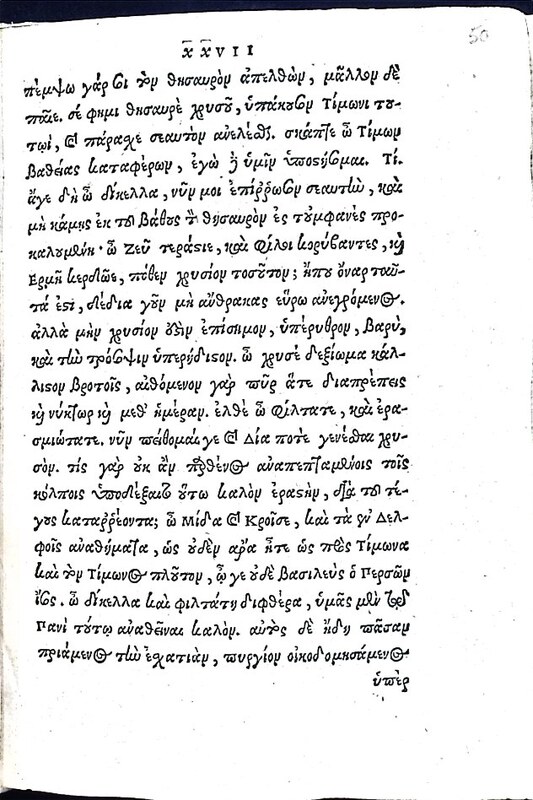 XXVII
50
πέμψω γάρ σοι τὸν θησαυρὸν ἀπελθών, μᾶλλον δὲ
παῖε. σέ φημι θησαυρὲ χρυσοῦ, ὑπάκουσον Τίμωνι του-
τωῒ, καὶ πάρασχε σεαυτὸν ἀνελέσθ. σκάπτε ὦ Τίμων
βαθείας καταφέρων, ἐγὼ δὲ ὑμῖν ὑποστήσομαι. Τί.
ἄγε δὴ ὦ δίκελλα, νῦν μοι ἐπίρρωσον σεαυτὴν, καὶ
μὴ κάμῃς ἐκ τοῦ βάθους τὸν θησαυρὸν ἐς τοὐμφανὲς προ-
καλουμένη· ὦ Ζεῦ τεράστιε, καὶ φίλοι κορύβαντες, καὶ
Ερμῆ κερδῶε, πόθεν χρυσίον τοσοῦτον; ἤπου ὄναρ ταῦ-
τά ἐστι, δέδια γοῦν μὴ ἄνθρακας εὕρω ἀνεγρόμενος.
ἀλλὰ μὴν χρυσίον ἐστὶν ἐπίσημον, ὑπέρυθρον, βαρὺ,
καὶ τὴν πρόσοψιν ὑπερήδιστον. ὦ χρυσὲ δεξίωμα κάλ-
λιστον βροτοῖς, αἰθόμενον γὰρ πῦρ ἅτε διαπρέπεις
καὶ νύκτωρ καὶ μεθ' ἡμέραν. ἐλθὲ ὦ φίλτατε, καὶ ἐρα-
σμιώτατε. νῦν πείθομαί γε καὶ Δία ποτὲ γενέσθαι χρυ-
σὸν. τίς γὰρ οὐκ ἂν παρθένος ἀναπεπταμένοις τοῖς
κόλποις ὑπεδέξατο οὕτω καλὸν ἐραστὴν, διὰ τοῦ τέ-
γους καταρρέοντα; ὦ Μίδα καὶ Κροῖσε, καὶ τὰ ἐν Δελ-
φοῖς ἀναθήματα, ὡς οὐδὲν ἄρα ἦτε ὡς πρὸς Τίμωνα
καὶ τὸν Τίμωνος πλοῦτον, ᾧ γε οὐδὲ βασιλεὺς ὁ Περσῶν
ἴσος. ὦ δίκελλα καὶ φιλτάτη διφθέρα, ὑμᾶς μὲν τῷ
Πανὶ τούτῳ ἀναθεῖναι καλόν. αὐτὸς δὲ ἤδη πᾶσαν
πριάμενος τὴν ἐσχατιὰν, πυργίον οἰκοδομησάμενος
ὑπὲρ